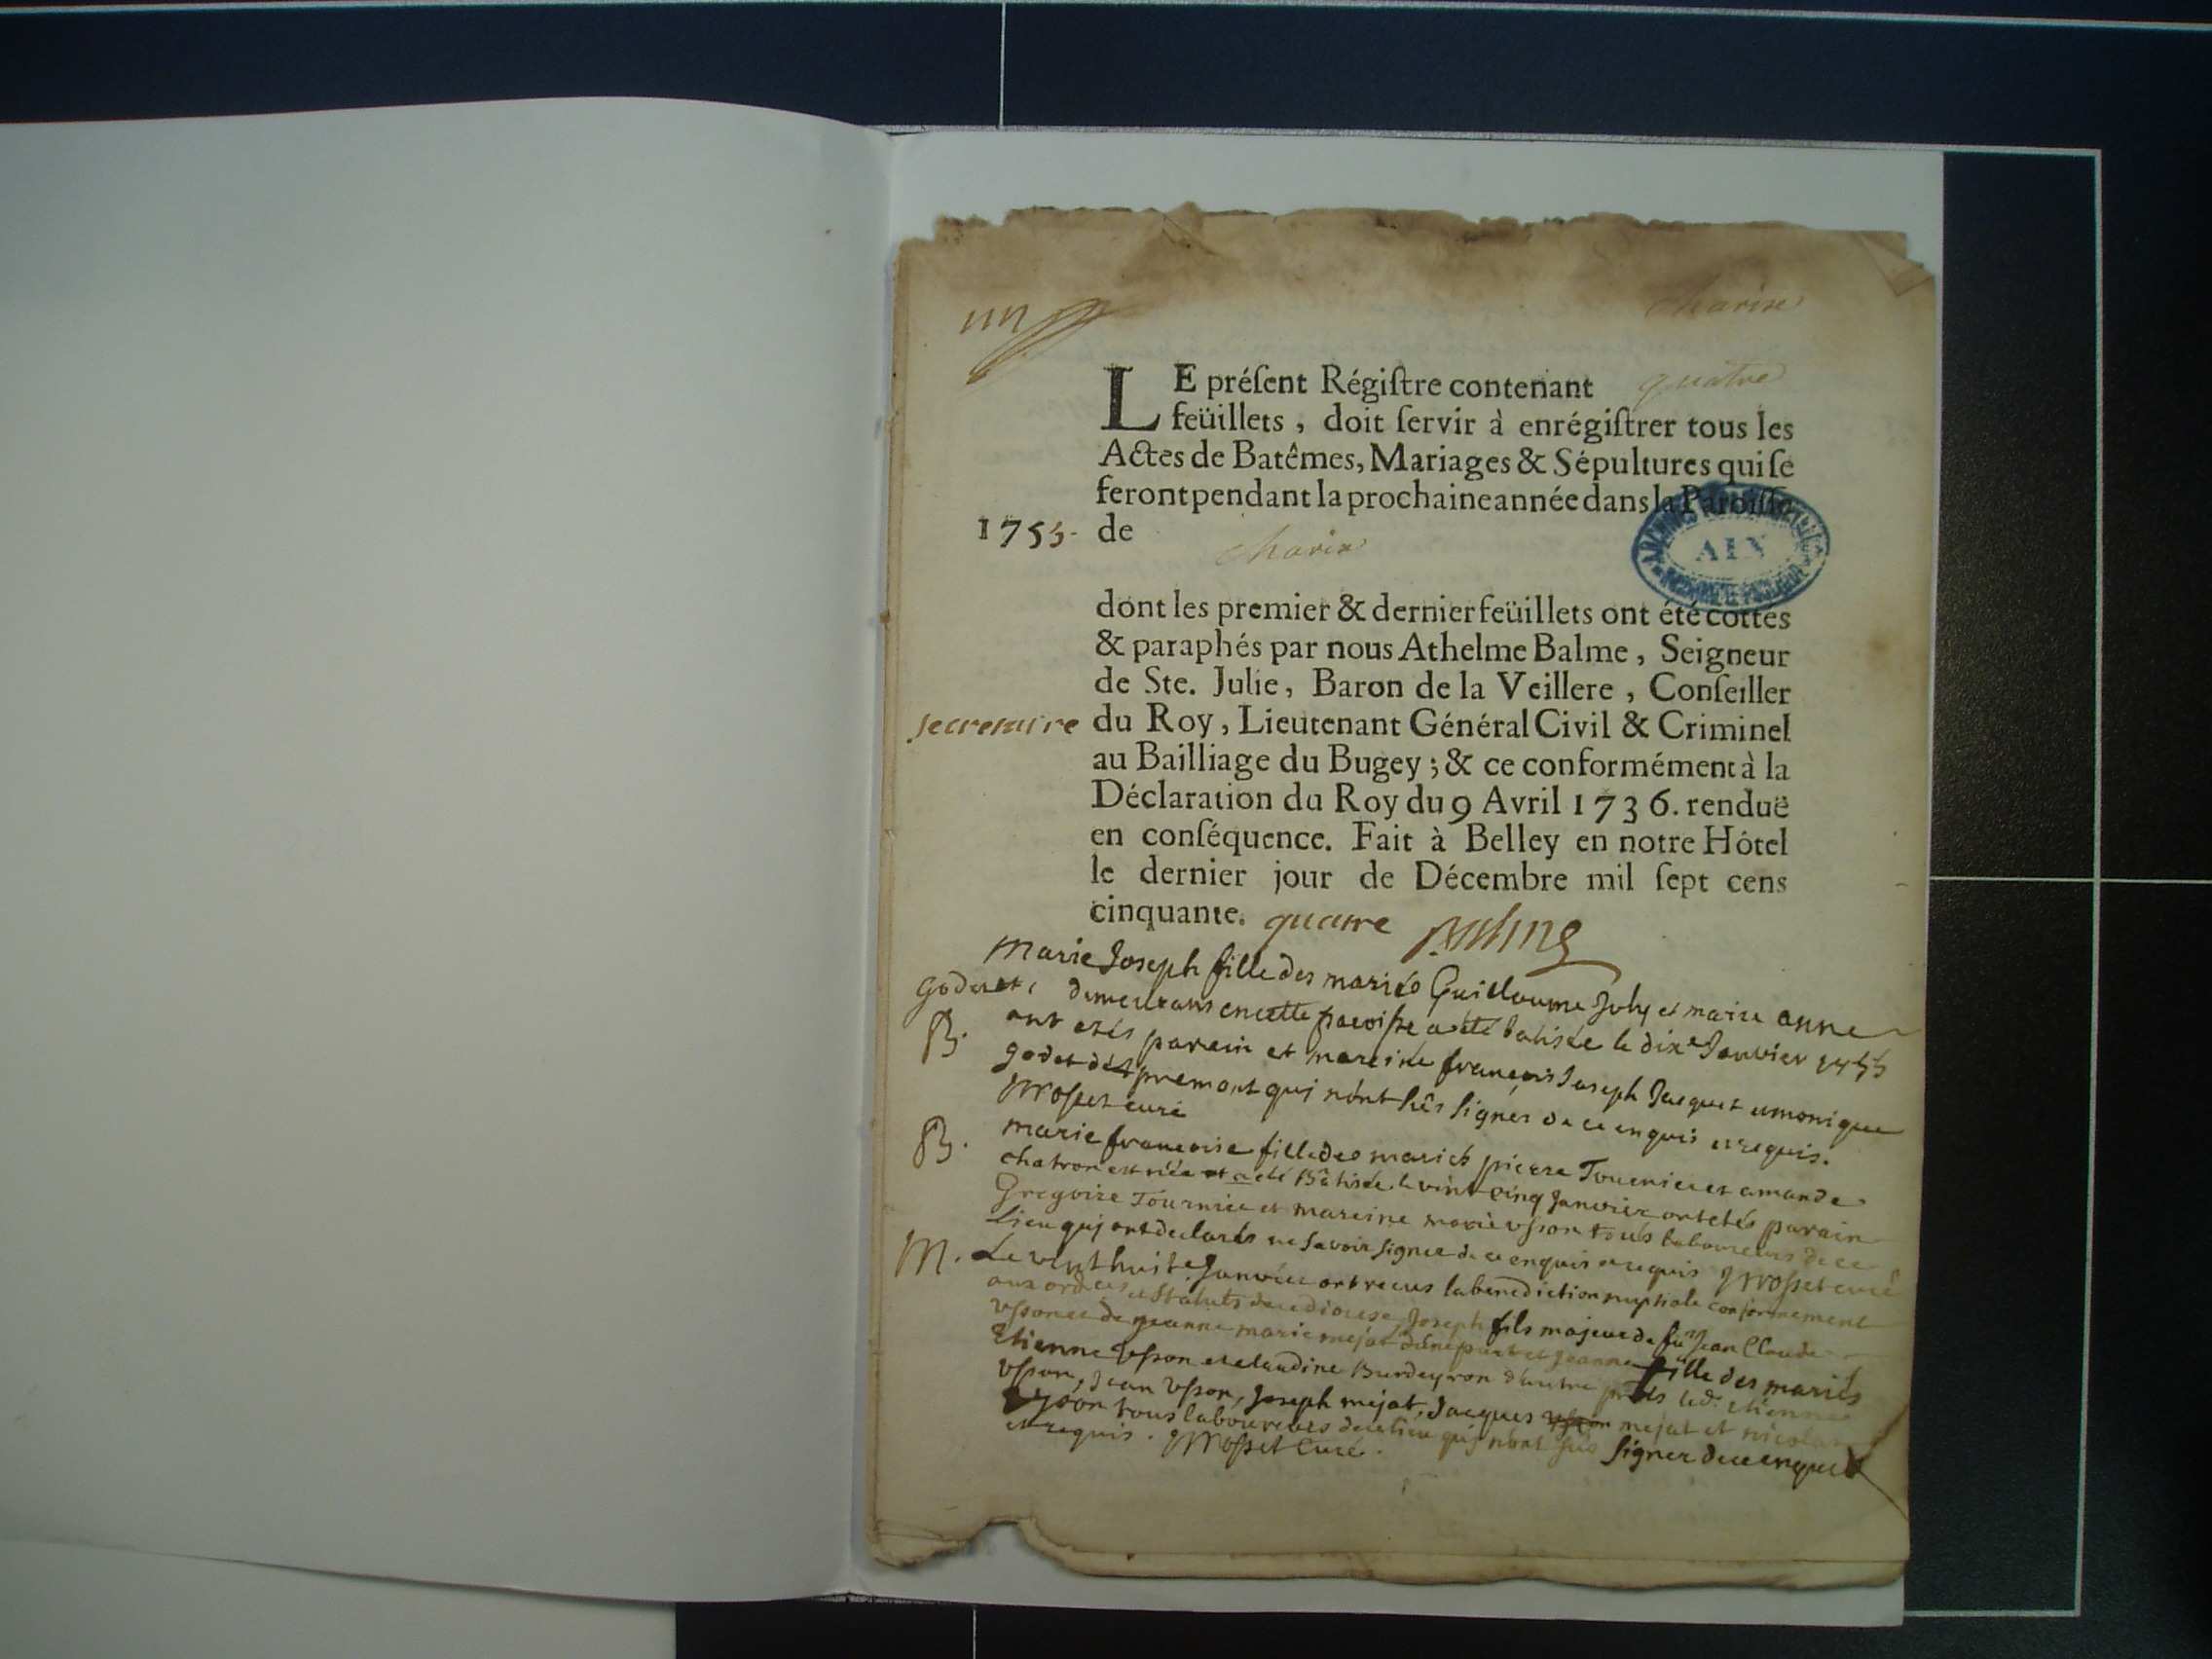 un
Charix
LE préſent Régiſtre contenant quatre
feüillets, doit ſervir à enrégiſtrer tous les
Actes de Batêmes, Mariages & Sépultures qui ſe
feront pendant la prochaine année dans la Paroiſſe
1755. de Charix
AIN
dont les premier & dernier feüillets ont été cottés
& paraphés par nous Athelme Balme, Seigneur
de Ste. Julie, Baron de la Veillere, Conſeiller
secretaire du Roy, Lieutenant Général Civil & Criminel
au Bailliage du Bugey; & ce conformément à la
Déclaration du Roy du 9 Avril 1736. renduë
en conſéquence. Fait à Belley en notre Hôtel
le dernier jour de Décembre mil ſept cens
cinquante. quatre
Marie Joseph fille des mariés Guillaume Joly et marie anne
godet, demeurans en cette paroisse a été batisée le dixe Janvier 1755
B. ont etés parein et mareine françois Joseph Jacquet et monique
godet de premont qui n'ont sûs signer de ce enquis et requis.
Mosset curé
B. marie françoise fille des mariés pierre Tournier et amande
chatron est née et a été Bâtisée le vint cinq Janvier ont etés parain
Gregoire Tournier et mareine marie usson tous laboureurs de ce
Lieu qui ont declarés ne savoir signer de ce enquis et requis Mosset curé
M. Le vint huite Janvier ont recus la benediction nuptiale conformement
aux ordres et statuts de ce diocese Joseph fils majeur de fû Jean Claude
usson et de jeanne marie mejat d'une part et Jeanne fille des mariés
Etienne usson et claudine Burdeyron d'autre pnts led. etienne
usson, Jean usson, Joseph mejat, Jacques usson mejat et nicolas
usson tous laboureurs de ce lieu qui n'ont sus signer de ce enquis
et requis. Mosset Curé.